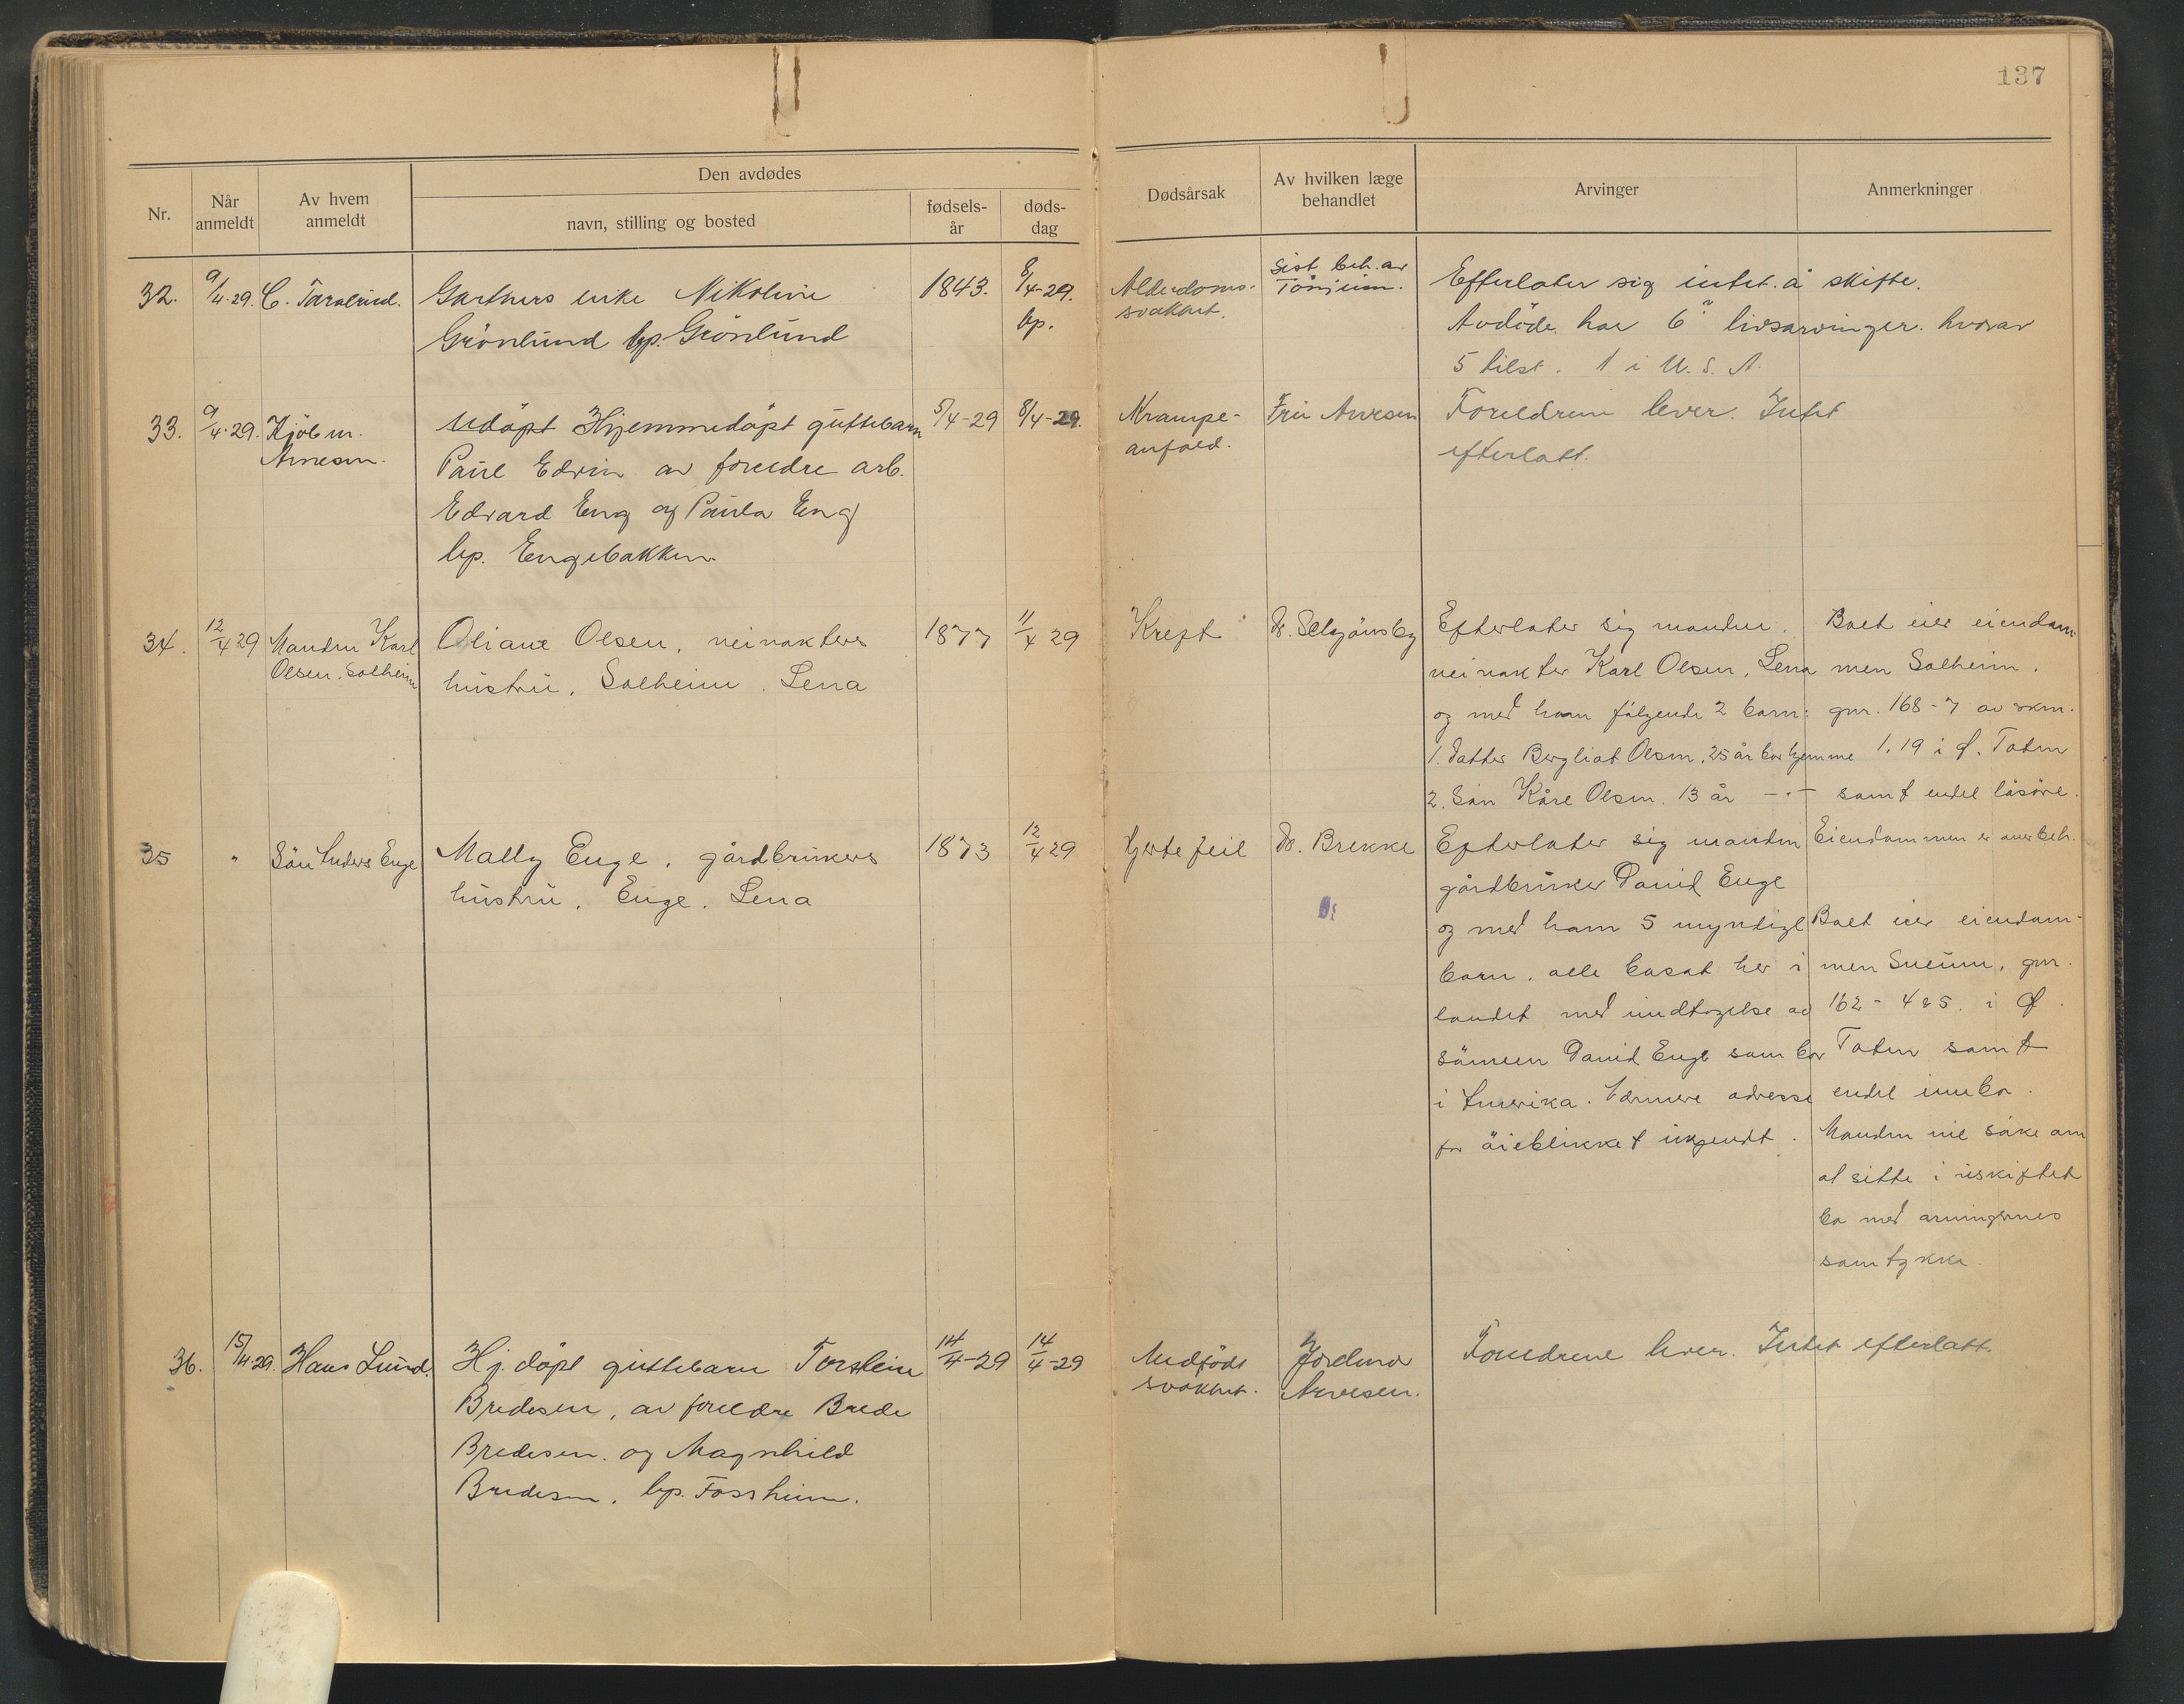 137
Nr.
Når anmeldt
Av hvem anmeldt
Den avdødes
navn, stilling og bosted
fødsels-år
døds-dag
Dødsårsak
Av hvilken læge behandlet
Arvinger
Anmerkninger
32.
9/4-29.
C. Taralrud.
Gartners enke Nikoline
Grönlund bp. Grönlund
1843.
8/4-29.
bp.
Alderdoms-
svakhet.
Sist beh. av
Tönjum.
Efterlater sig intet å skifte.
Avdöde har 6 livsarvinger. hvorav
5 tilst. 1 i U. S. A.
33.
9/4-29.
Kjöbm.
Arnesen.
Udöpt Hjemmedöpt guttebarn
Paul Edvin av foreldre arb.
Edvard Eng og Paula Eng
bp. Engebakken.
5/4-29
8/4-29.
Krampe-
anfald.
Fru Arnesen
Foreldrene lever. Intet
efterlatt.
34.
12/4 29
Manden Karl
Olsen, Solheim
Oliane Olsen, veivokters
hustru, Solheim. Lena
1877
11/4 29
Kreft
Dr. Selsjönsby
Efterlater sig manden.
veivokter Karl Olsen, Lena
og med ham følgende 2 barn:
1. Datter Bergliot Olsen, 25 år bor hjemme
2. Sön Kåre Olsen. 13 år -"-
Boet eier eiendom-
men Solheim.
gnr. 168-7 av skm.
1.19 i Ø. Toten
samt endel lösöre.
35
"
Sön Anders Enge
Mally Enge, gårdbrukers
hustru, Enge. Lena
1873
12/4 29
Hjertefeil
Dr. Brekke
Efterlater sig manden
gårdbruker David Enge
og med ham 5 myndige
barn. alle bosat her i
landet med undtagelse av
sönnen David Enge som bor
i Amerika. Nærmere adresse
for öieblikket ukjendt.
Eiendommen er anerbeh.
Boet eier eiendom-
men Sneum, gnr.
162 - 4 & 5. i Ø.
Toten samt
endel innbo.
Manden vil söke om
at sitte i uskiftet
bo med arvingernes
samtykke
36.
15/4-29.
Hans Lund.
Hj. döpt guttebarn Torstein
Bredesen, av foreldre Brede
Bredesen. og Magnhild
Bredesen. bp. Fossheim.
14/4-29
14/4-29
Medfödt
svakhet.
Jordmor
Arnesen.
Foreldrene lever. Intet efterlatt.